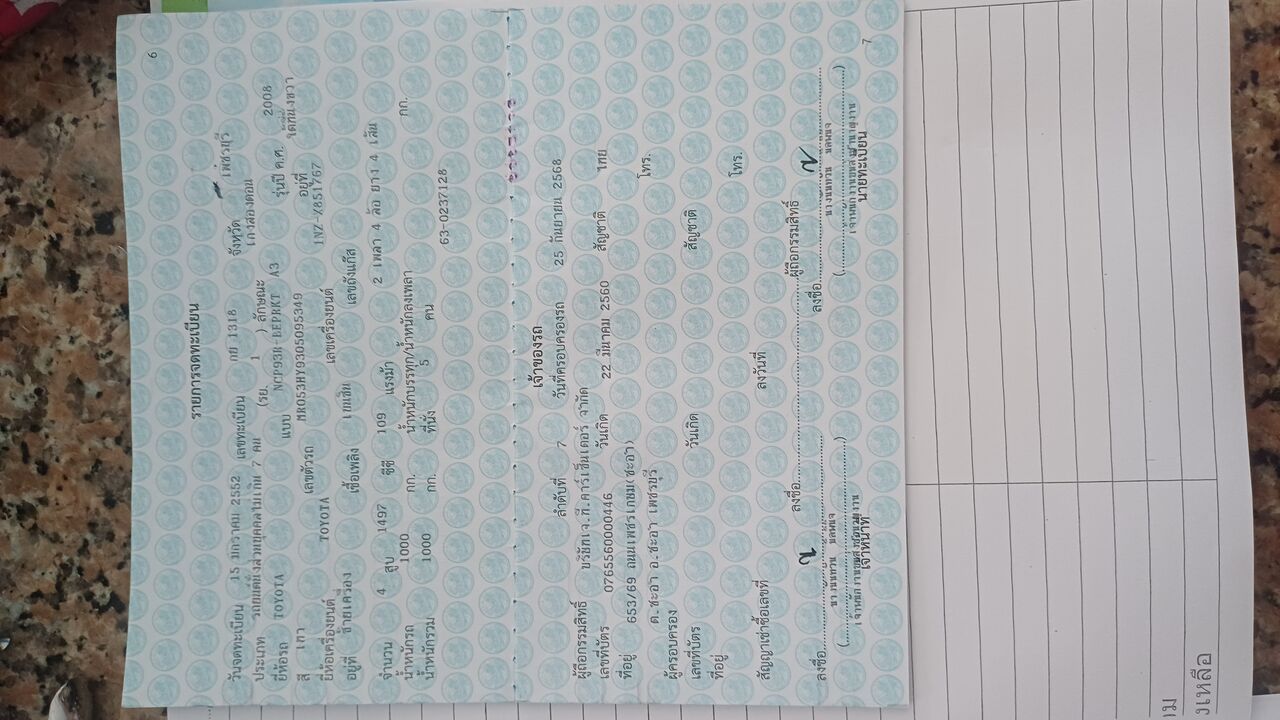 6
รายการจดทะเบียน
วันจดทะเบียน 15 มกราคม 2552 เลขทะเบียน กย 1318 จังหวัด เพชรบุรี
ประเภท รถยนต์นั่งส่วนบุคคลไม่เกิน 7 คน (รย. 1 ) ลักษณะ เก๋งสองตอน
ยี่ห้อรถ TOYOTA แบบ NCP93R-BEPRKT A3 รุ่นปี ค.ศ. 2008
สี เทา เลขตัวรถ MR053HY9305095349 อยู่ที่ ใต้ที่นั่งขวา
ยี่ห้อเครื่องยนต์ TOYOTA เลขเครื่องยนต์ 1NZ-X851767
อยู่ที่ ซ้ายเครื่อง เชื้อเพลิง เบนซิน เลขถังแก๊ส
จำนวน 4 สูบ 1497 ซีซี 109 แรงม้า 2 เพลา 4 ล้อ ยาง 4 เส้น
น้ำหนักรถ 1000 กก. น้ำหนักบรรทุก/น้ำหนักลงเพลา กก.
น้ำหนักรวม 1000 กก. ที่นั่ง 5 คน
63-0237128
เจ้าของรถ
ลำดับที่ 7 วันที่ครอบครองรถ 25 กันยายน 2568
ผู้ถือกรรมสิทธิ์ บริษัทเจ.ที.คาร์เซ็นเตอร์ จำกัด
เลขที่บัตร 0765560000446 วันเกิด 22 มีนาคม 2560 สัญชาติ ไทย
ที่อยู่ 653/69 ถนนเพชรเกษม(ชะอำ) โทร.
ต.ชะอำ อ.ชะอำ เพชรบุรี
ผู้ครอบครอง
เลขที่บัตร วันเกิด สัญชาติ
ที่อยู่ โทร.
สัญญาเช่าซื้อเลขที่ ลงวันที่
ลงชื่อ ผู้ถือกรรมสิทธิ์
ลงชื่อ ลงชื่อ
เจ้าหน้าที่ นายทะเบียน
7